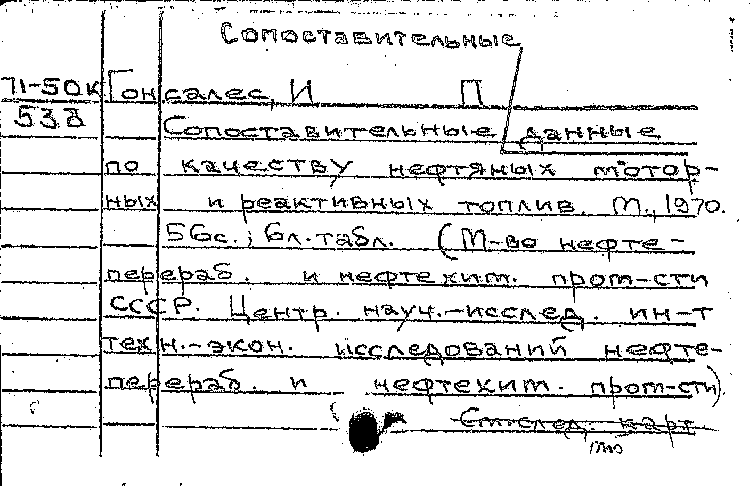 Сопоставительные
71-50К Гонсалес, И П
538 Сопоставительные данные
по качеству нефтяных мотор-
ных и реактивных топлив. М., 1970.
56с.; 6л.табл. (М-во нефте-
перераб. и нефтехим. пром-сти
СССР. Центр. науч.-исслед. ин-т
техн.-экон. исследований нефте-
перераб. и нефтехим. пром-сти).
См.след. карт